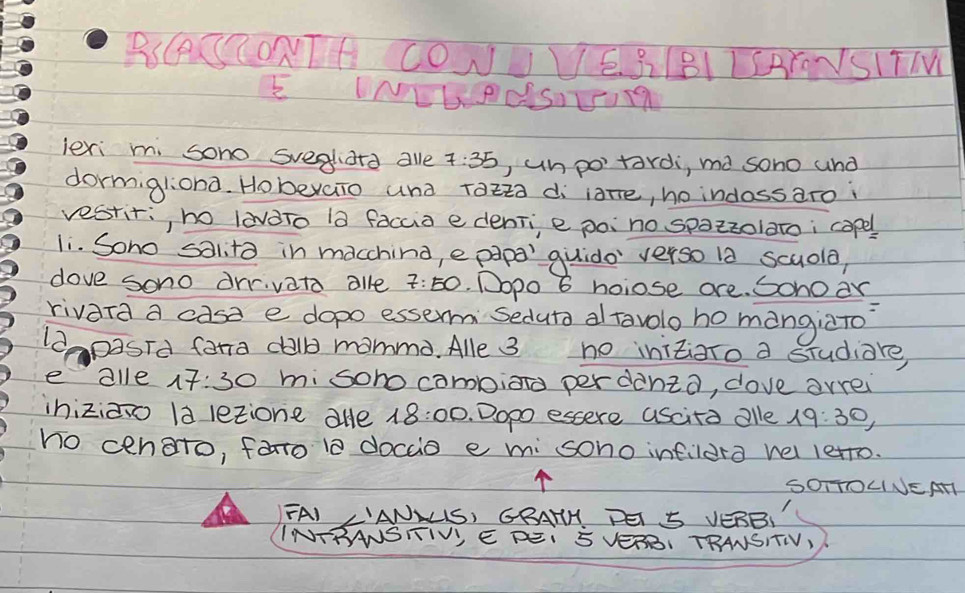 RACCONTA CON I VERBI TRANSITIVI
E INTRANSITIVI
Ieri mi sono svegliata alle 7:35, un po' tardi, ma sono una
dormigliona. Ho bevuto una tazza di latte, ho indossato i
vestiti, ho lavato la faccia e denti, e poi ho spazzolato i capel
li. Sono salita in macchina, e papà guidò verso la scuola,
dove sono arrivata alle 7:50. Dopo 6 noiose ore. Sono ar
rivata a casa e dopo essermi seduta al tavolo ho mangiato
la pasta fatta dalla mamma. Alle 3 ho iniziato a studiare,
e alle 17:30 mi sono cambiata per danza, dove avrei
iniziato la lezione alle 18:00. Dopo essere uscita alle 19:30,
ho cenato, fatto la doccia e mi sono infilata nel letto.
SOTTOLINEATI
FAI L'ANALISI GRAMM. DEI 5 VERBI
INTRANSITIVI E DEI 5 VERBI TRANSITIVI.